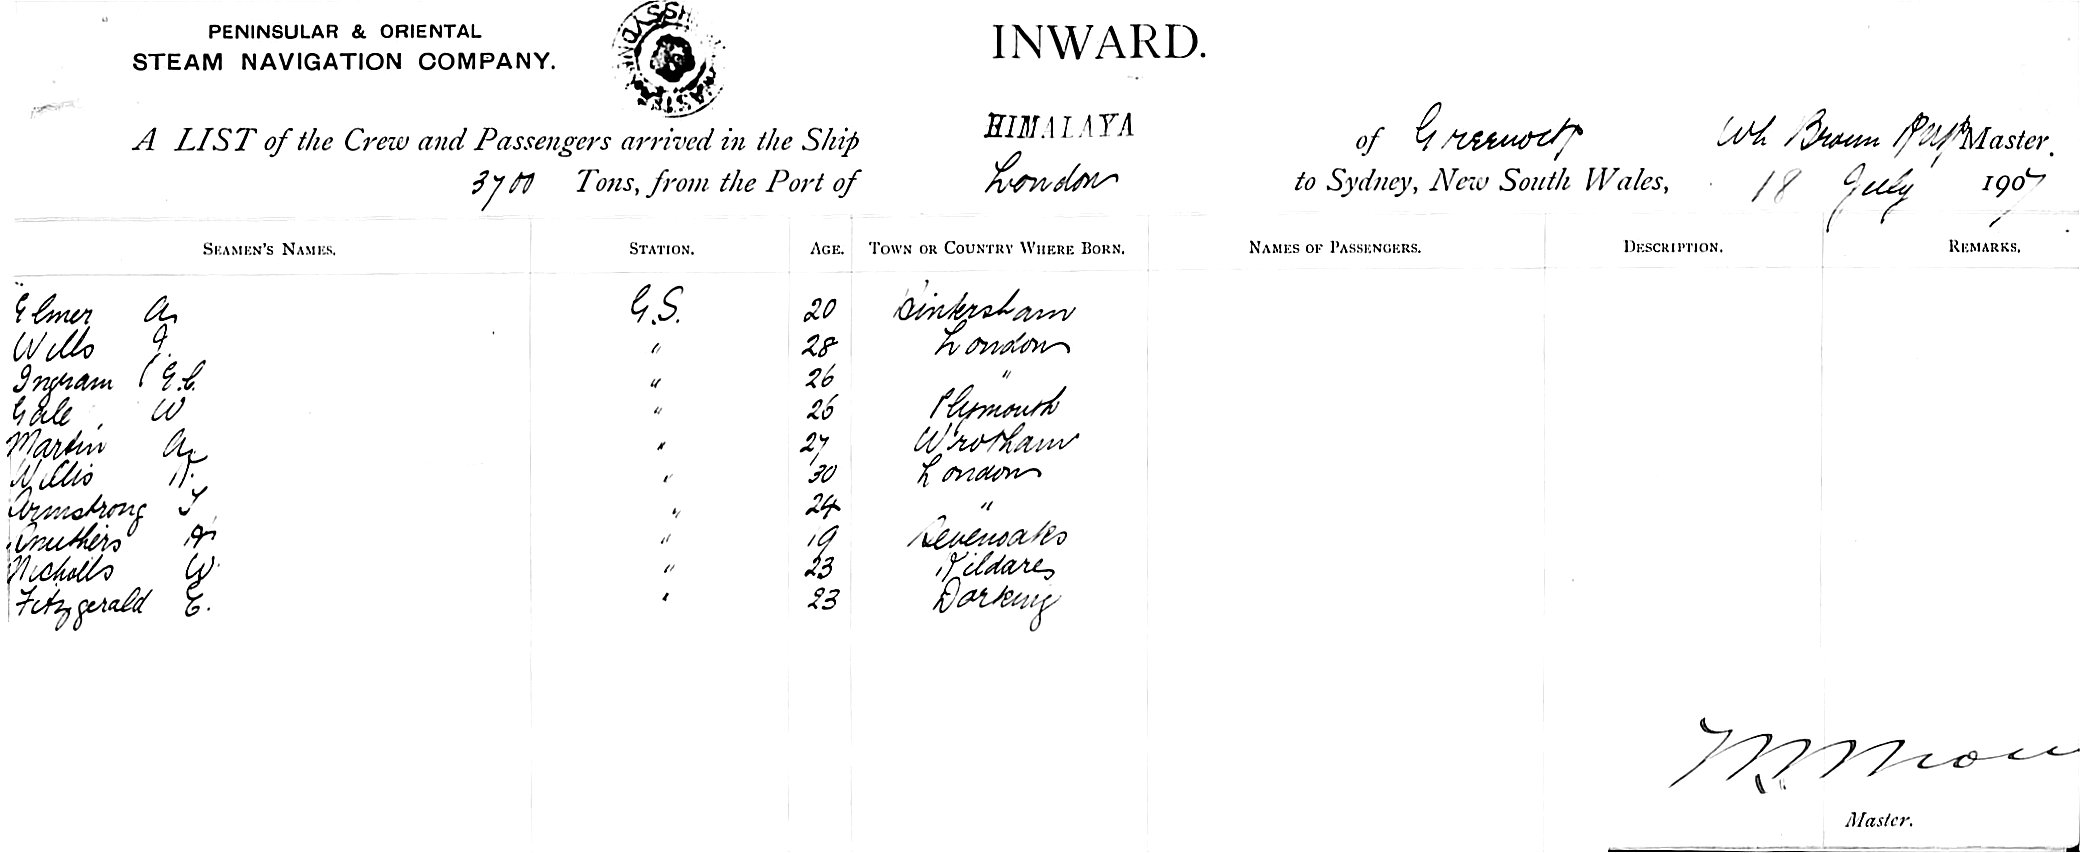 PENINSULAR & ORIENTAL
STEAM NAVIGATION COMPANY.
INWARD.
A LIST of the Crew and Passengers arrived in the Ship HIMALAYA of Greenock Wh Broun Master.
3700 Tons, from the Port of London to Sydney, New South Wales, 18 July 1907
SEAMEN'S NAMES. STATION. AGE. TOWN OR COUNTRY WHERE BORN. NAMES OF PASSENGERS. DESCRIPTION. REMARKS.
Elmer A. G.S. 20
Wills J. " 28 London
Ingram E.C. " 26 "
Gale W " 26 Plymouth
Martin A. " 27 Wrotham
Willis " 30 London
Armstrong " 24 "
" 19 Sevenoaks
Nicholls W. " 23 Kildare
Fitzgerald E. " 23 Dorking
Master.